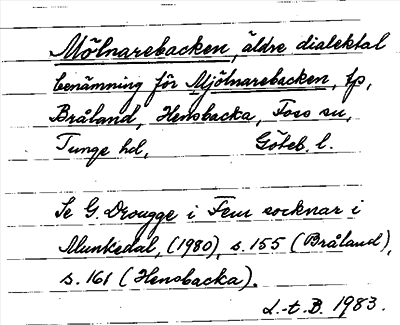 Mölnarebacken, äldre dialektal
benämning för Mjölnarebacken, tp,
Bråland, Hensbacka, Foss sn,
Tunge hd, Göteb. l.
Se G. Drougge i Fem socknar i
Munkedal, (1980), s. 155 (Bråland),
s. 161 (Hensbacka).
L.-t. B. 1983.